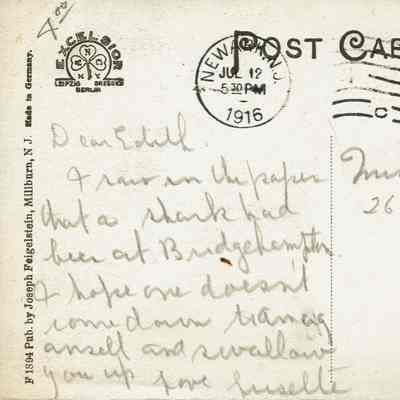 4.00
EXCELSIOR
N
N Y
LEIPZIG DRESDEN
BERLIN
POST CAR
NEWARK, N.J.
JUL 12
5 30 PM
1916
C
F 1894 Pub. by Joseph Feigelstein, Millburn, N J. Made in Germany.
Dear Edith.
I saw in the paper
that a shark had
been at Bridgehampton.
I hope one doesn't
come down
and swallow
you up love Lusette
26